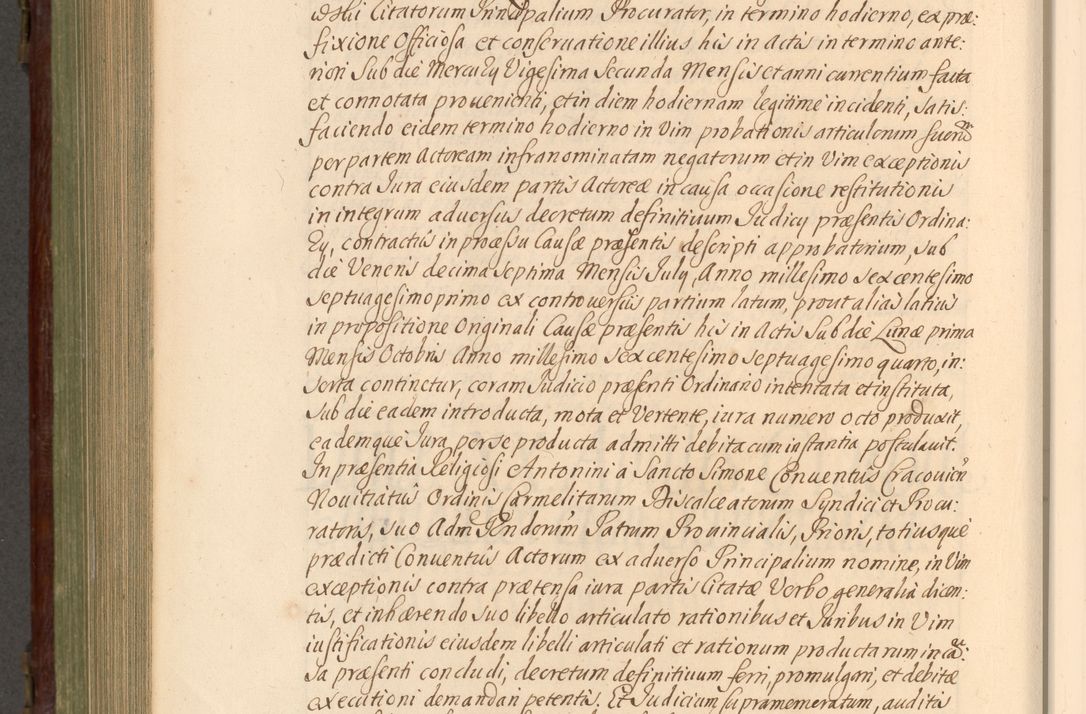 Citatorum Principalium Procurator, in termino hodierno, ex præ:
fixione Officiosa et conseruatione illius his in Actis in termino ante:
riori sub die Mercurÿ Vigesima Secunda Mensis et anni currentium facta
et connotata prouenienti, et in diem hodiernam legitimè incidenti, satis:
faciendo eidem termino hodierno in Vim probationis articulorum suorum
per partem Actoream infranominatam negatorum et in Vim exceptionis
contra Jura eiusdem partis Actoreæ in causa occasione restitutionis
in integrum aduersus decretum definitiuum Judicÿ præsentis Ordina:
rÿ, contractûs in processu Causæ præsentis descripti approbatorium, sub
die Veneris decima septima Mensis Julÿ, Anno millesimo sexcentesimo
septuagesimo primo ex controuersiis partium latum, prout alias latius
in propositione Originali Causæ præsentis his in Actis sub die Lunæ prima
Mensis Octobris Anno millesimo sexcentesimo septuagesimo quarto, in:
serta continetur, coram Judicio præsenti Ordinario intentata et instituta,
sub die eadem introducta, mota et Vertente, iura numero octo produxit,
eademque Jura, per se producta admitti debita cum instantia postulauit.
In præsentia Religiosi Antonini à Sancto Simone Conuentûs Cracouień
Nouitiatûs Ordinis Carmelitarum Discalceatorum Syndici et Procu:
ratoris, suo Adm Rndorum Patrum Prouincialis, Prioris, totiusquè
prædicti Conuentûs Actorum ex aduerso Principalium nomine, in Vim
exceptionis contra prætensa iura partis Citatæ Verbo generalia dicen:
tis, et inhærendo suo libello articulato rationibus et Juribus in Vim
iustificationis eiusdem libelli articulati et rationum productarum in cau:
sa præsenti concludi, decretum definitiuum ferri, promulgari, et debitæ
executioni demandari petentis. Et Judicium supramemoratum, auditis